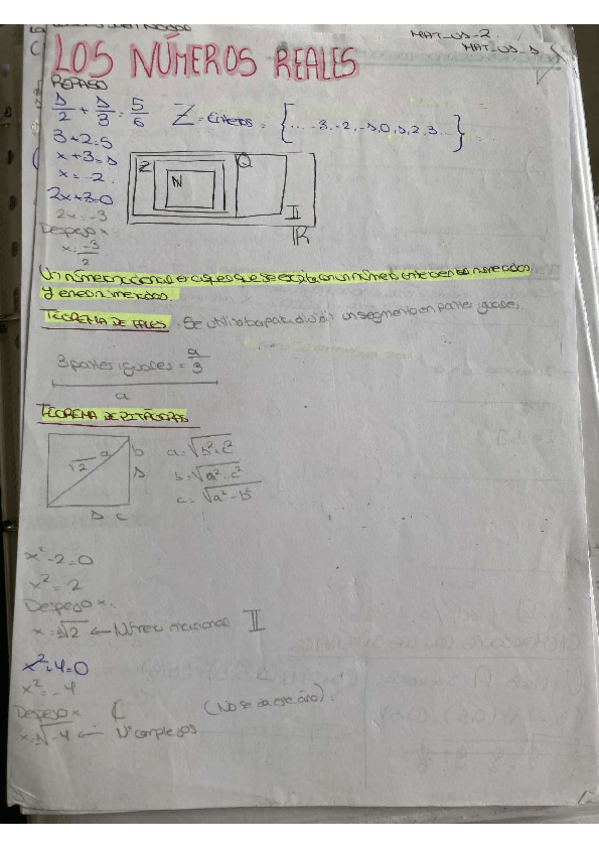 MAT_US_2
MAT_US_1
LOS NÚMEROS REALES
REPASO
1/2 + 1/3 = 5/6
Z = ENTEROS = {... -3, -2, -1, 0, 1, 2, 3 ...}
3+2=5
x+3=1
x=-2
2x+3=0
2x=-3
Despejo x
x=-3/2
Z
N
Q
II
R
Un número racional es aquel que se escribe con un número entero en el numerador
y en el denominador.
TEOREMA DE TALES. Se utilizaba para dividir un segmento en partes iguales
3 partes iguales = a/3
a
TEOREMA DE PITÁGORAS
√2 a b
1
1 c
a=√b²+c²
b=√a²-c²
c=√a²-b²
x²-2=0
x²=2
Despejo x.
x=±√2 ← Número irracional II
x²+4=0
x²=-4
Despejo x C (No se da este año)
x=±√-4 ← Nº complejos